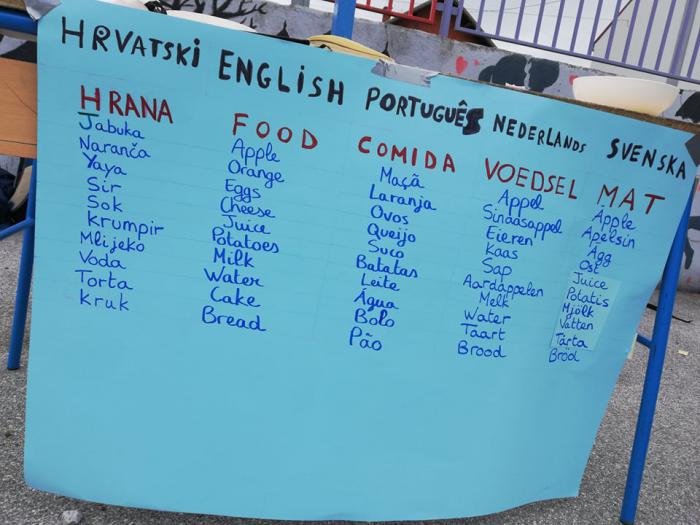 HRVATSKI ENGLISH PORTUGUÊS NEDERLANDS SVENSKA
HRANA FOOD COMIDA VOEDSEL MAT
Jabuka Apple Maçã Appel Äpple
Naranča Orange Laranja Sinaasappel Apelsin
Yaya Eggs Ovos Eieren Ägg
Sir Cheese Queijo Kaas Ost
Sok Juice Suco Sap Juice
Krumpir Potatoes Batatas Aardappelen Potatis
Mlijeko Milk Leite Melk Mjölk
Voda Water Água Water Vatten
Torta Cake Bolo Taart Tårta
Kruk Bread Pão Brood Bröd